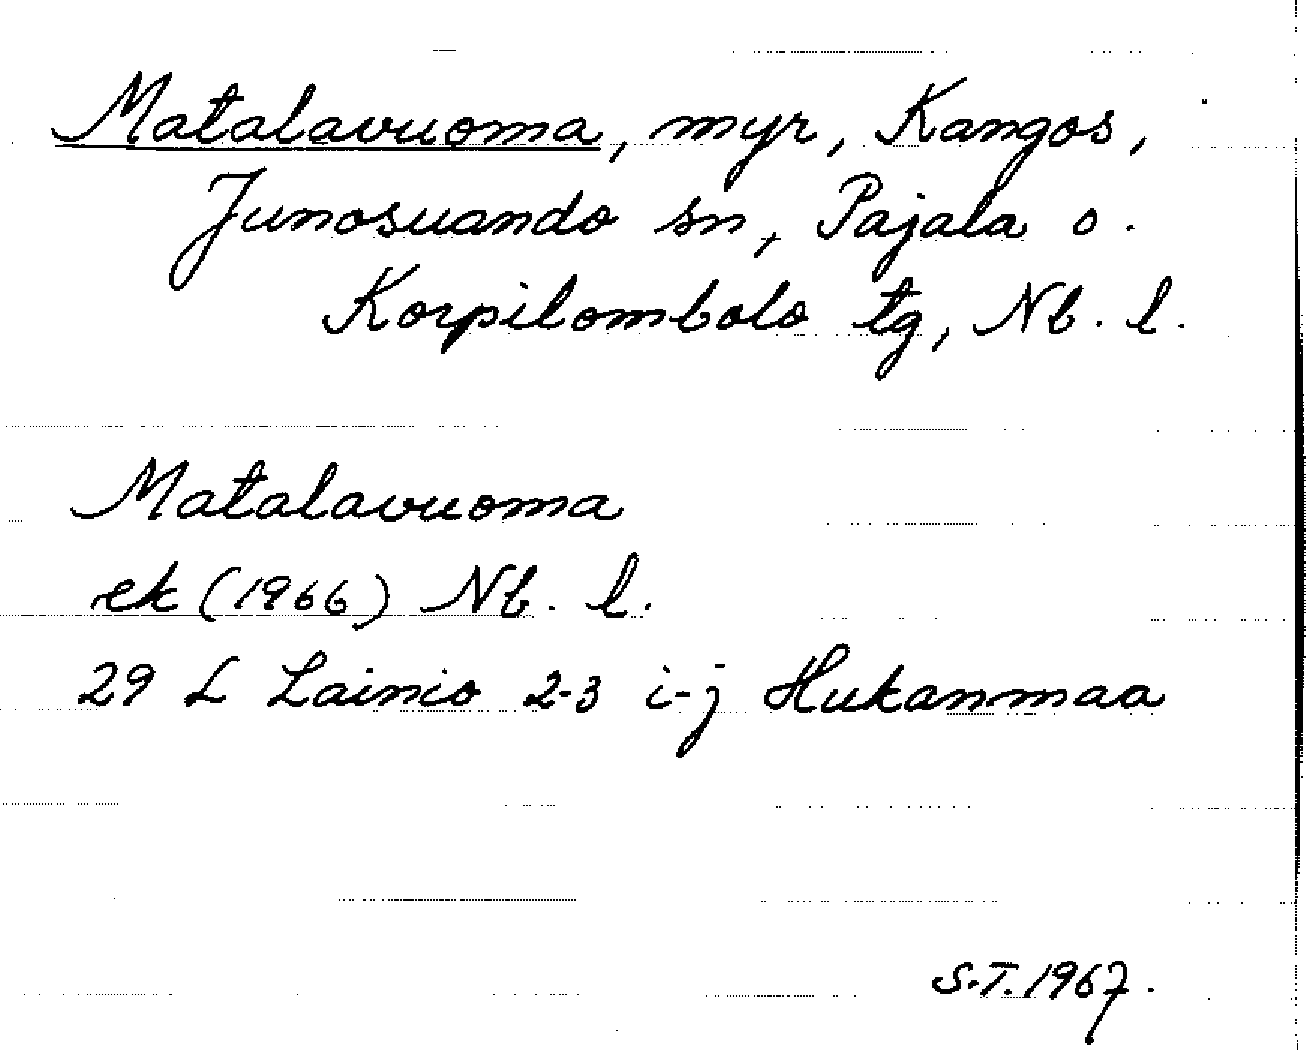 Matalavuoma, myr, Kangos,
Junosuando sn, Pajala o.
Korpilombolo tg, Nb. l.
Matalavuoma
ek (1966) Nb. l.
29 L Lainio 2-3 i-j Hukanmaa
S.T. 1967.